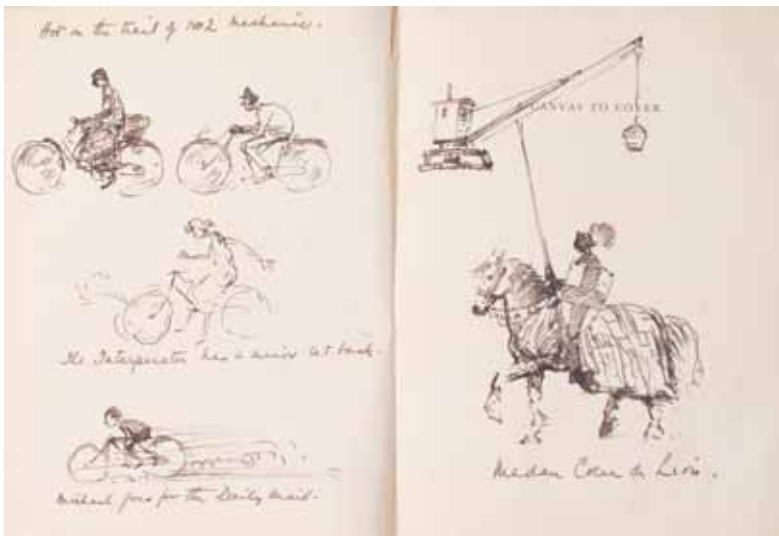 Hot on the trail of No 2 mechanic.
The Interpreter has a minor set back.
Michael goes for the Daily Mail.
A CANVAS TO COVER
Coeur de Lion.